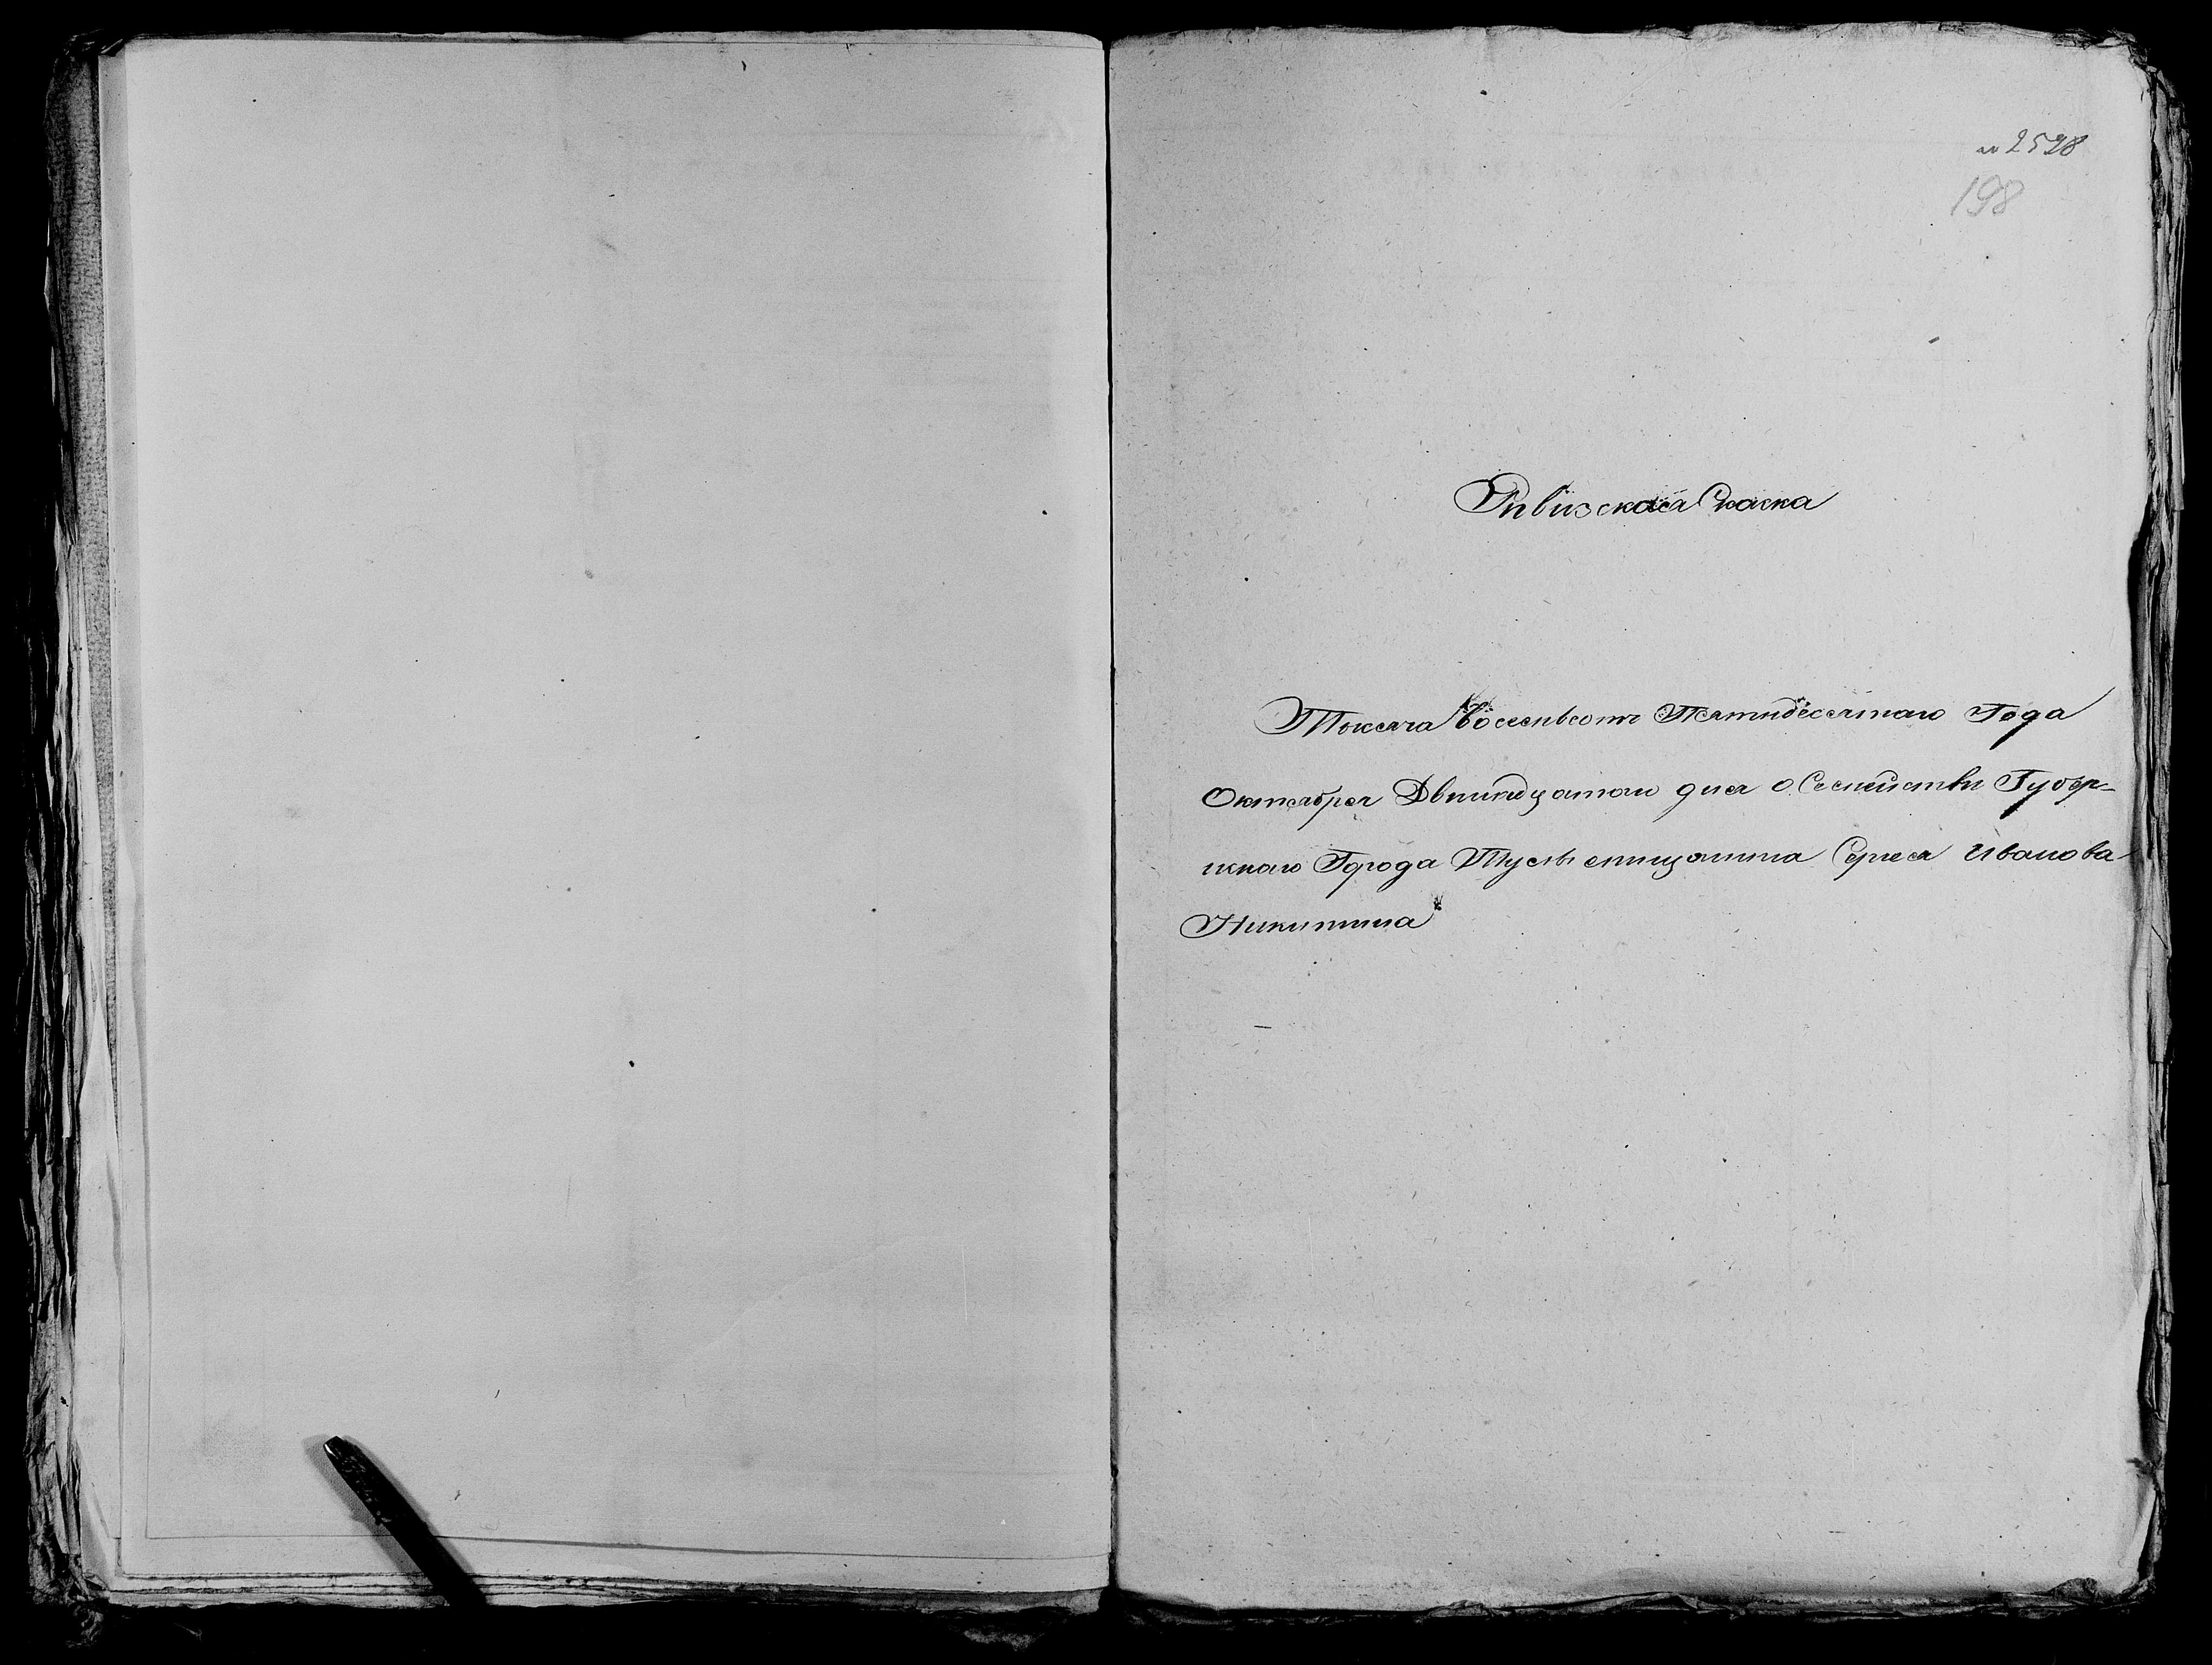 № 2528
198
Ривизская Скаска
Тысеча Восемьсотъ Пятидесятаго Года
Октября Двѣнадцатаго дня о Семействѣ Губер-
нскаго Города Тулы мещанина Сергея Иванова
Никитина